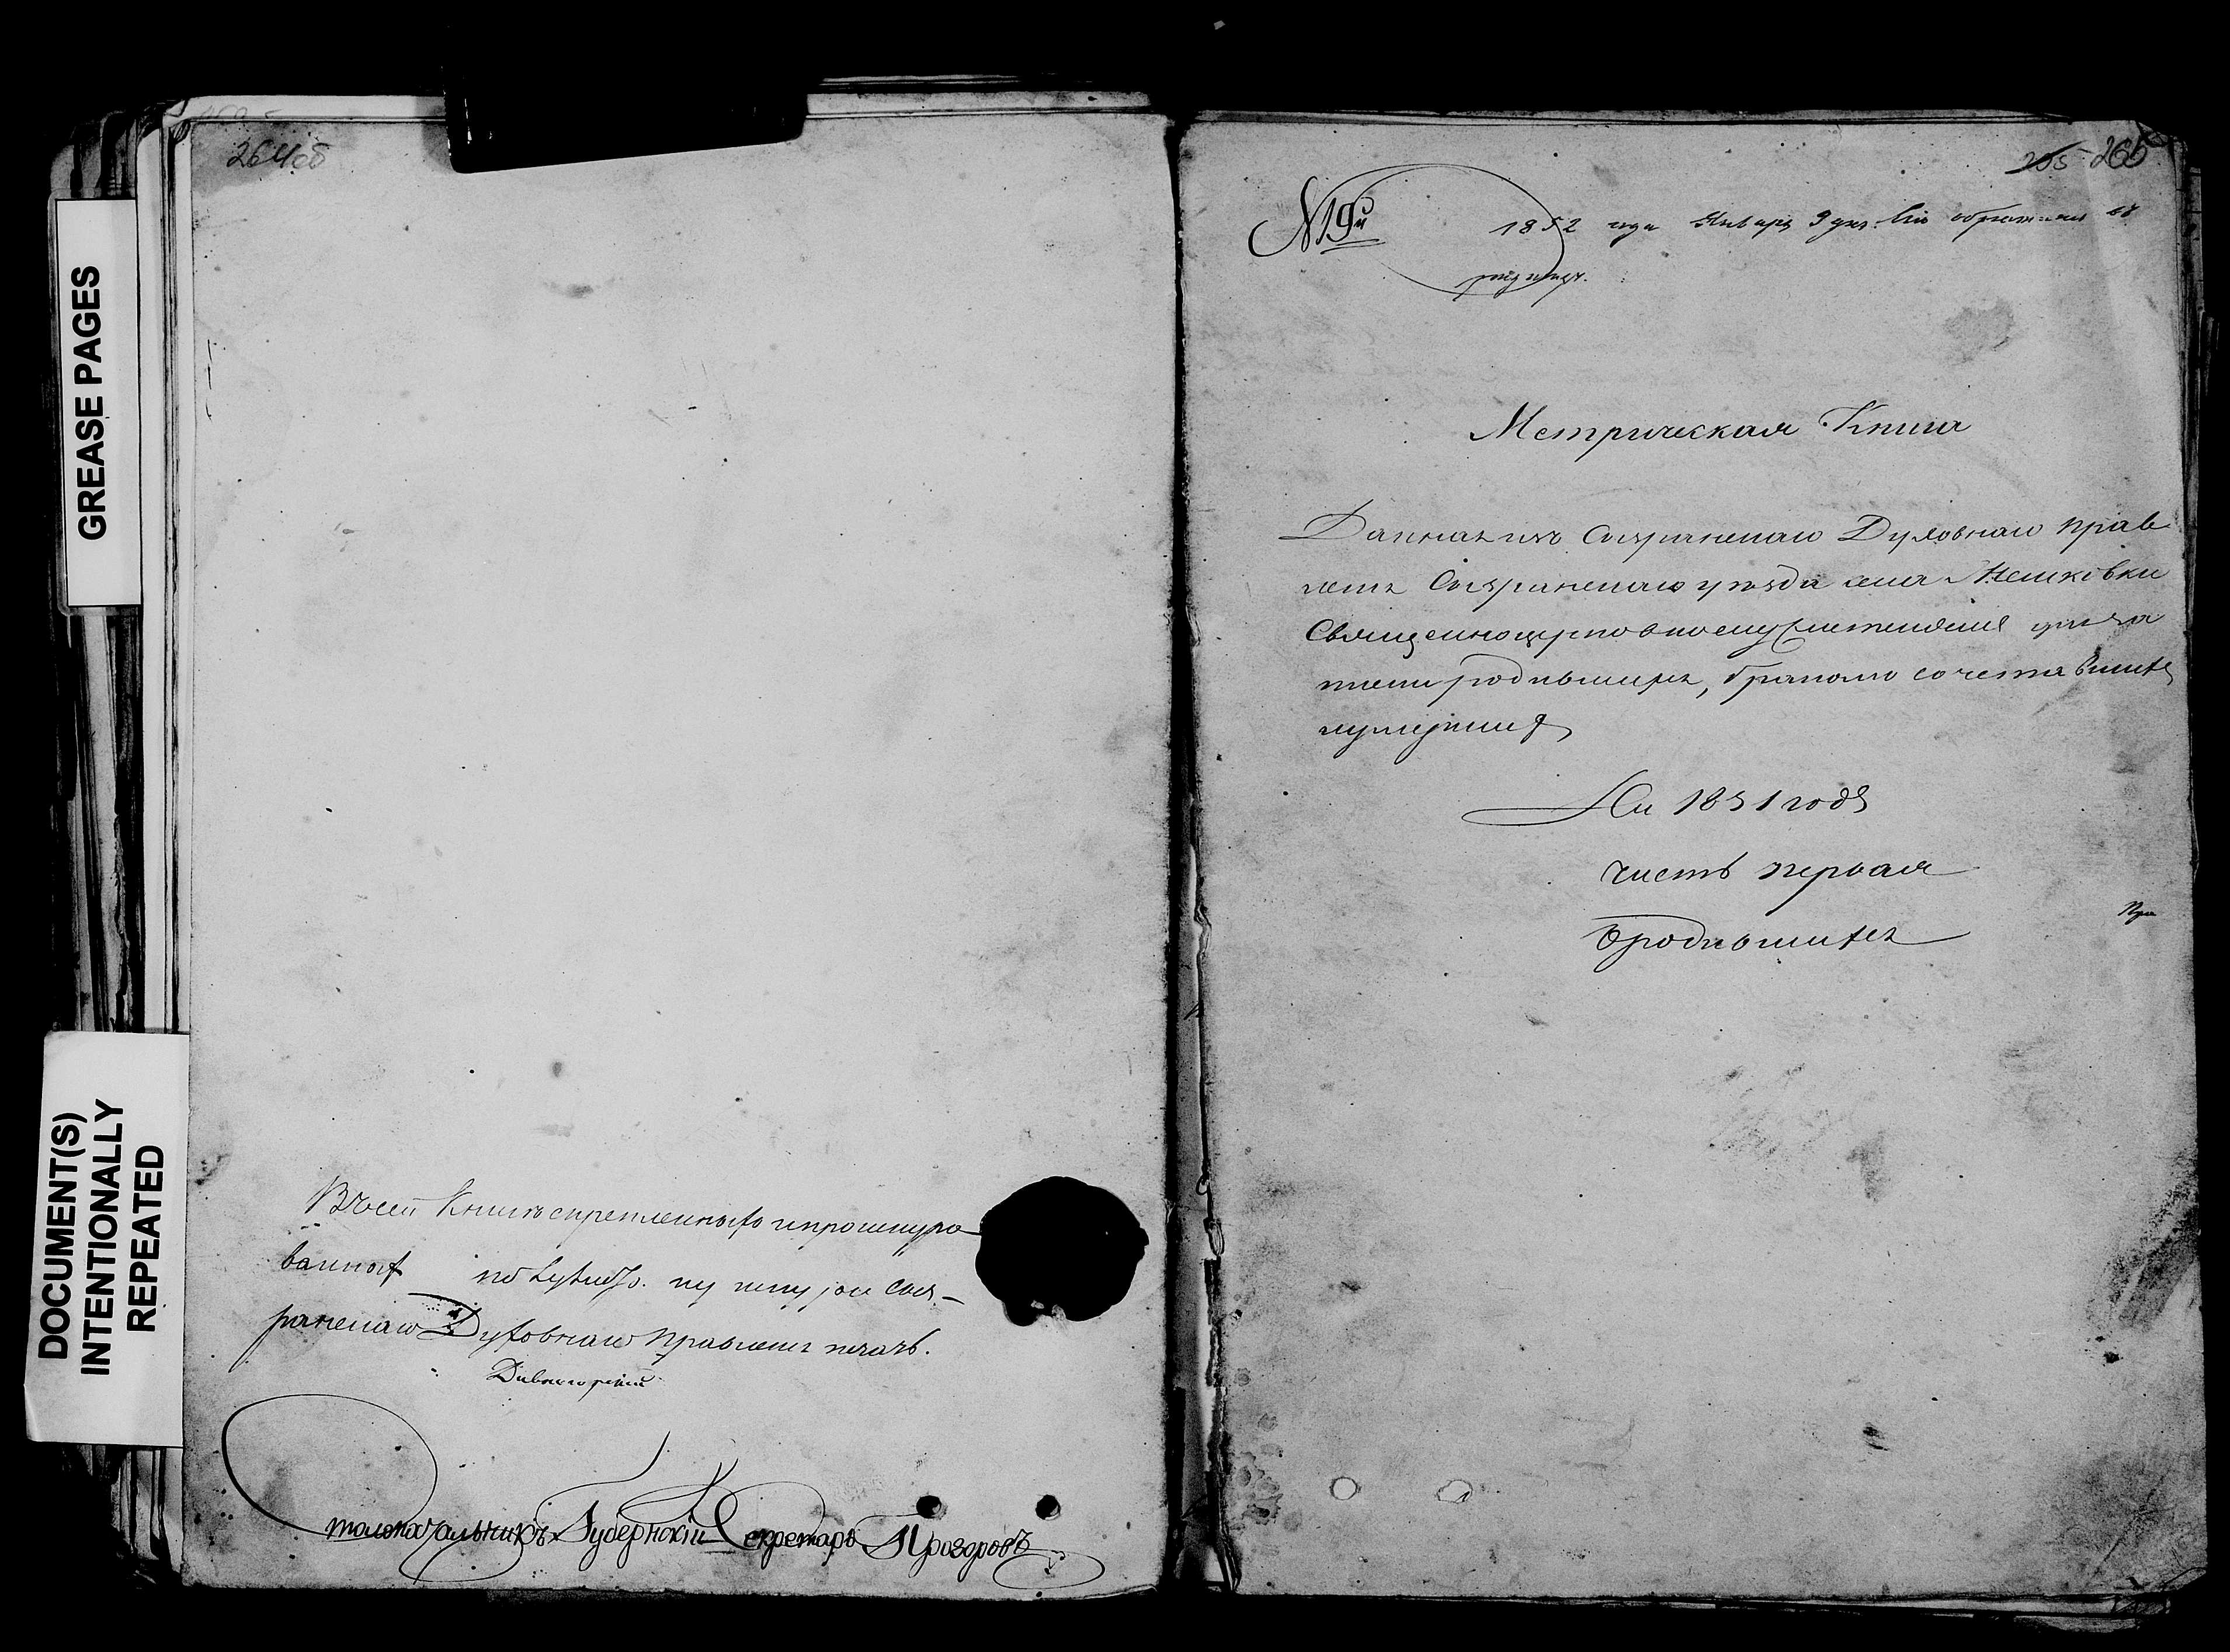 GREASE PAGES
DOCUMENT(S)
INTENTIONALLY
REPEATED
264об
Въ сей Книгѣ скрепленныхъ и прошнуро
ванныхъ
ранскаго Духовнаго Правления печать.
столоначальникъ Губернскій Секретарь Прозоровъ
205 265
N 19й
1852 года Января 9 дня
Метрическая Книга
Данная изъ Сызранскаго Духовнаго Прав
ления Сызранскаго уезда села Мешковки
Священноцерковнослужителямъ для за
писи родившихся, бракомъ сочетавшихся
и умершихъ
На 1851 годъ
часть первая
О родившихся